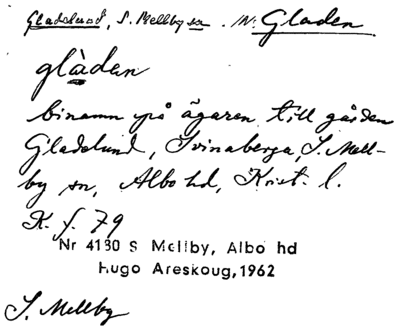 Gladelund, S. Mellby sn. N: Gladen
gladen
binamn på ägaren till gården
Gladelund, Svinaberga, S. Mell-
by sn, Albo hd, Krist. l.
K. f. 79
Nr 4130 S Mellby, Albo hd
Hugo Areskoug, 1962
S. Mellby